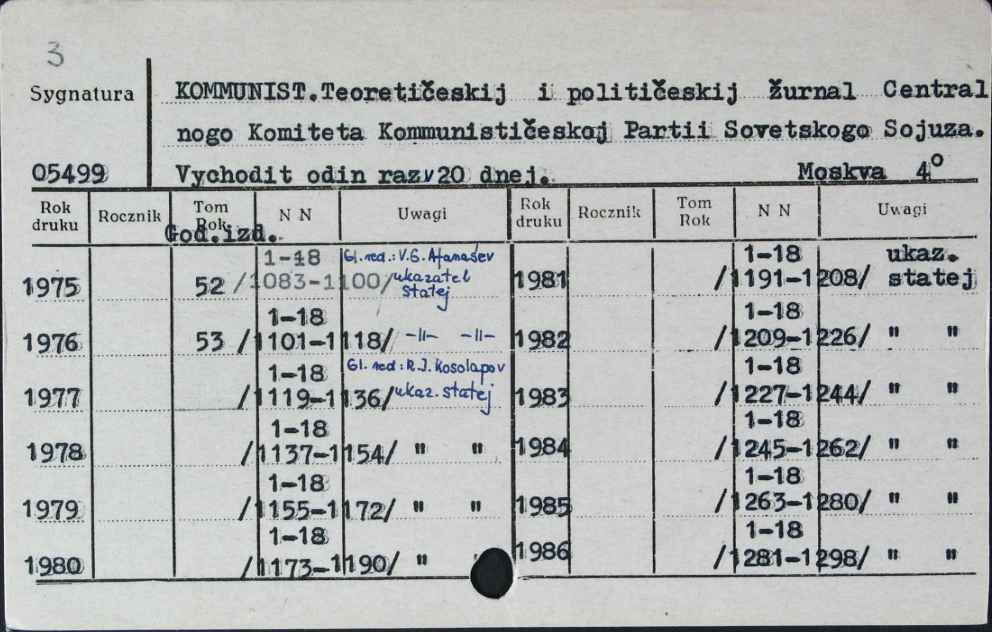 3
Sygnatura
KOMMUNIST.Teoretičeskij i političeskij žurnal Central
nogo Komiteta Kommunističeskoj Partii Sovetskogo Sojuza.
05499
Vychodit odin raz v 20 dnej. Moskva 4°
Rok druku Rocznik Tom Rok N N Uwagi Rok druku Rocznik Tom Rok N N Uwagi
God.izd.
1-18 Gl. red.: V.G. Afanasev
1975 52 /1083-1100/ ukazatel statej
1-18
1976 53 /1101-1118/ -||- -||-
1-18 Gl. red.: R.J. Kosolapov
1977 /1119-1136/ ukaz. statej
1-18
1978 /1137-1154/ " "
1-18
1979 /1155-1172/ " "
1-18
1980 /1173-1190/ " "
1-18 ukaz.
1981 /1191-1208/ statej
1-18
1982 /1209-1226/ " "
1-18
1983 /1227-1244/ " "
1-18
1984 /1245-1262/ " "
1-18
1985 /1263-1280/ " "
1-18
1986 /1281-1298/ " "